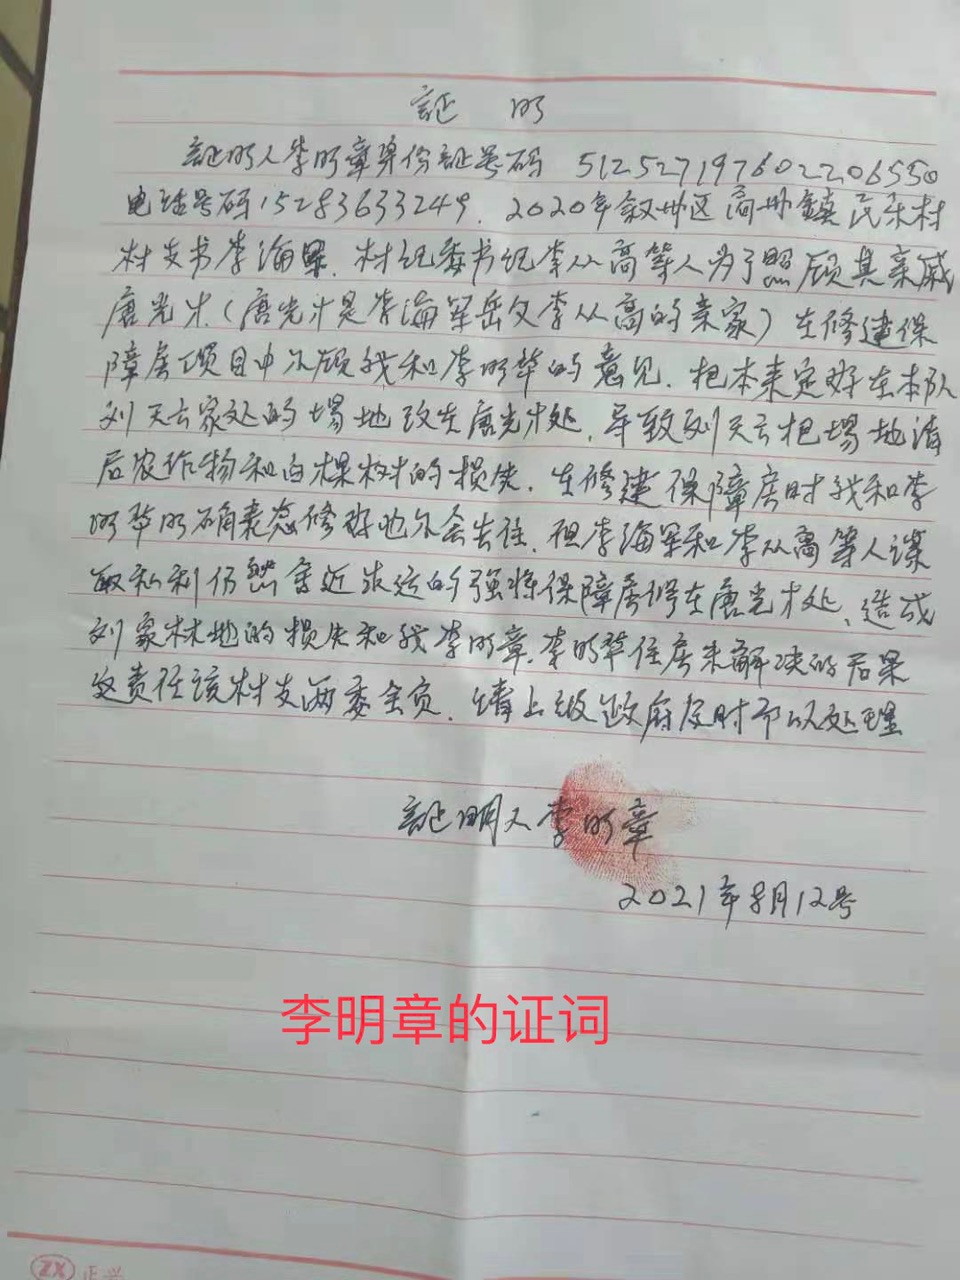 证 明
证明人李明章身份证号码 512527197602206550
电话号码15283633249. 2020年叙州区高州镇民乐村
村支书李海军. 村纪委书纪李从高等人为了照顾其亲戚
唐光才(唐光才是李海军岳父李从高的亲家)在修建保
障房项目中不顾我和李明华的意见. 把本来定好在本队
刘天云家处的場地改在唐光才处. 导致刘天云把場地清
后农作物和白棵树的损失. 在修建保障房时我和李
明华明确表态修好也不会去住. 但李海军和李从高等人谋
取私利仍然舍近求远的强将保障房修在唐光才处、造成
刘家林地的损失和我李明章. 李明华住房未解决的后果
这责任该村支两委全负. 请上级政府及时予以处理
证明人李明章
2021年8月12号
李明章的证词
ZX 正兴